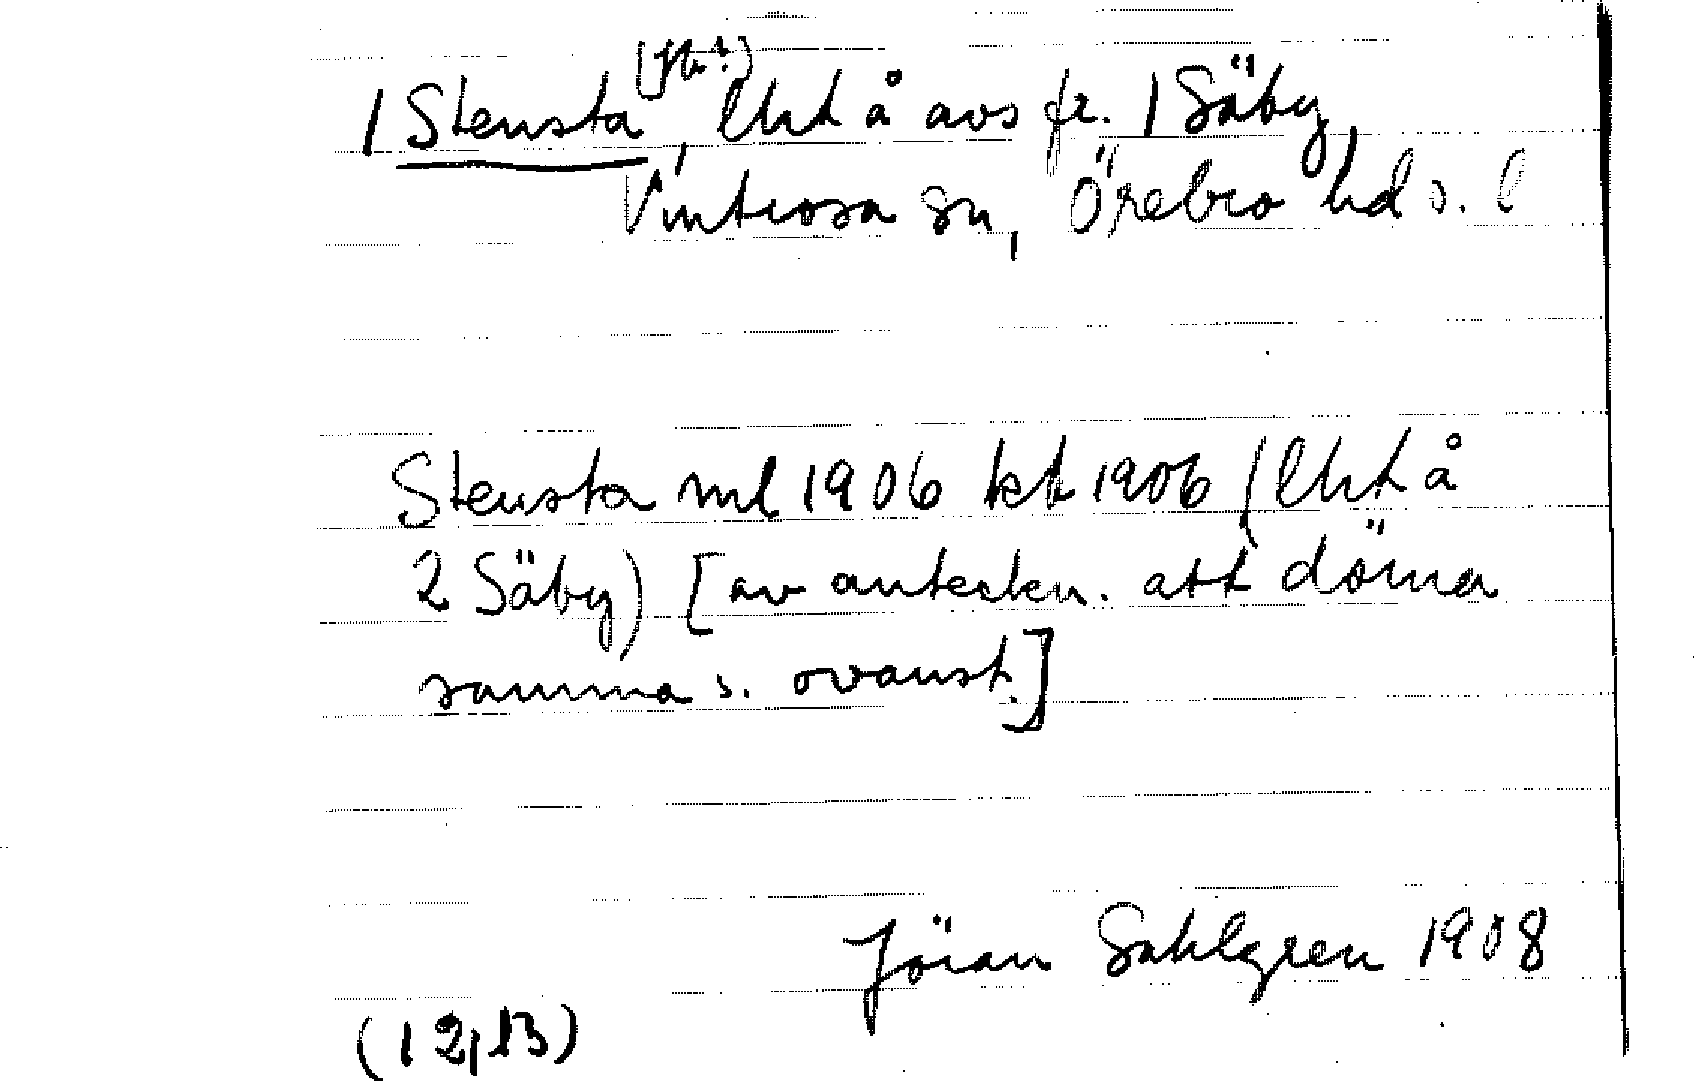 1 Stensta (fk?), lht å avs fr. 1 Säby,
Vintrosa sn, Örebro hd s. l
Stensta ml 1906 kk 1906 (lht å
2 Säby) [av anteckn. att döma
samma s. ovanst.]
Jöran Sahlgren 1908
(12,13)